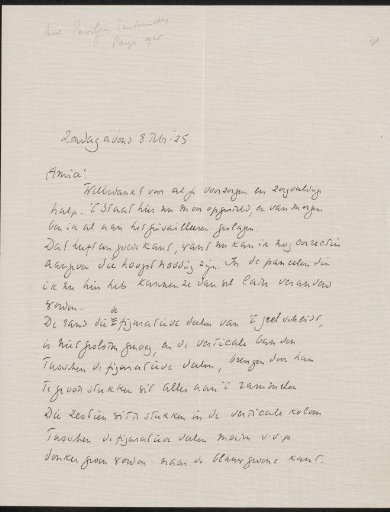 Zondagavond 8 Febr '25
Amice!
Welbedankt voor al je voorzorgen en zorgvuldige
hulp. 't Staat hier nu mooi opgesteld, en van morgen
ben ik al aan het geslagen
Dat heeft een goede kant, want nu kan ik nog correcties
aangeven die hoogst noodig zijn. In de paneelen die
ik nu hier heb kunnen ze dan wel laten veranderd
worden.
De rand die de figuratieve deelen van 't geel scheidt,
is niet groen genoeg, en de verticale banden
tusschen de figuratieve deelen, brengen door hun
te groote stukken wit alles aan 't rammelen
Die zestien witte stukken in de verticale kolom
tusschen de figuratieve deelen moeten s.v.p
donker groen worden naar de blauwgroene kant.